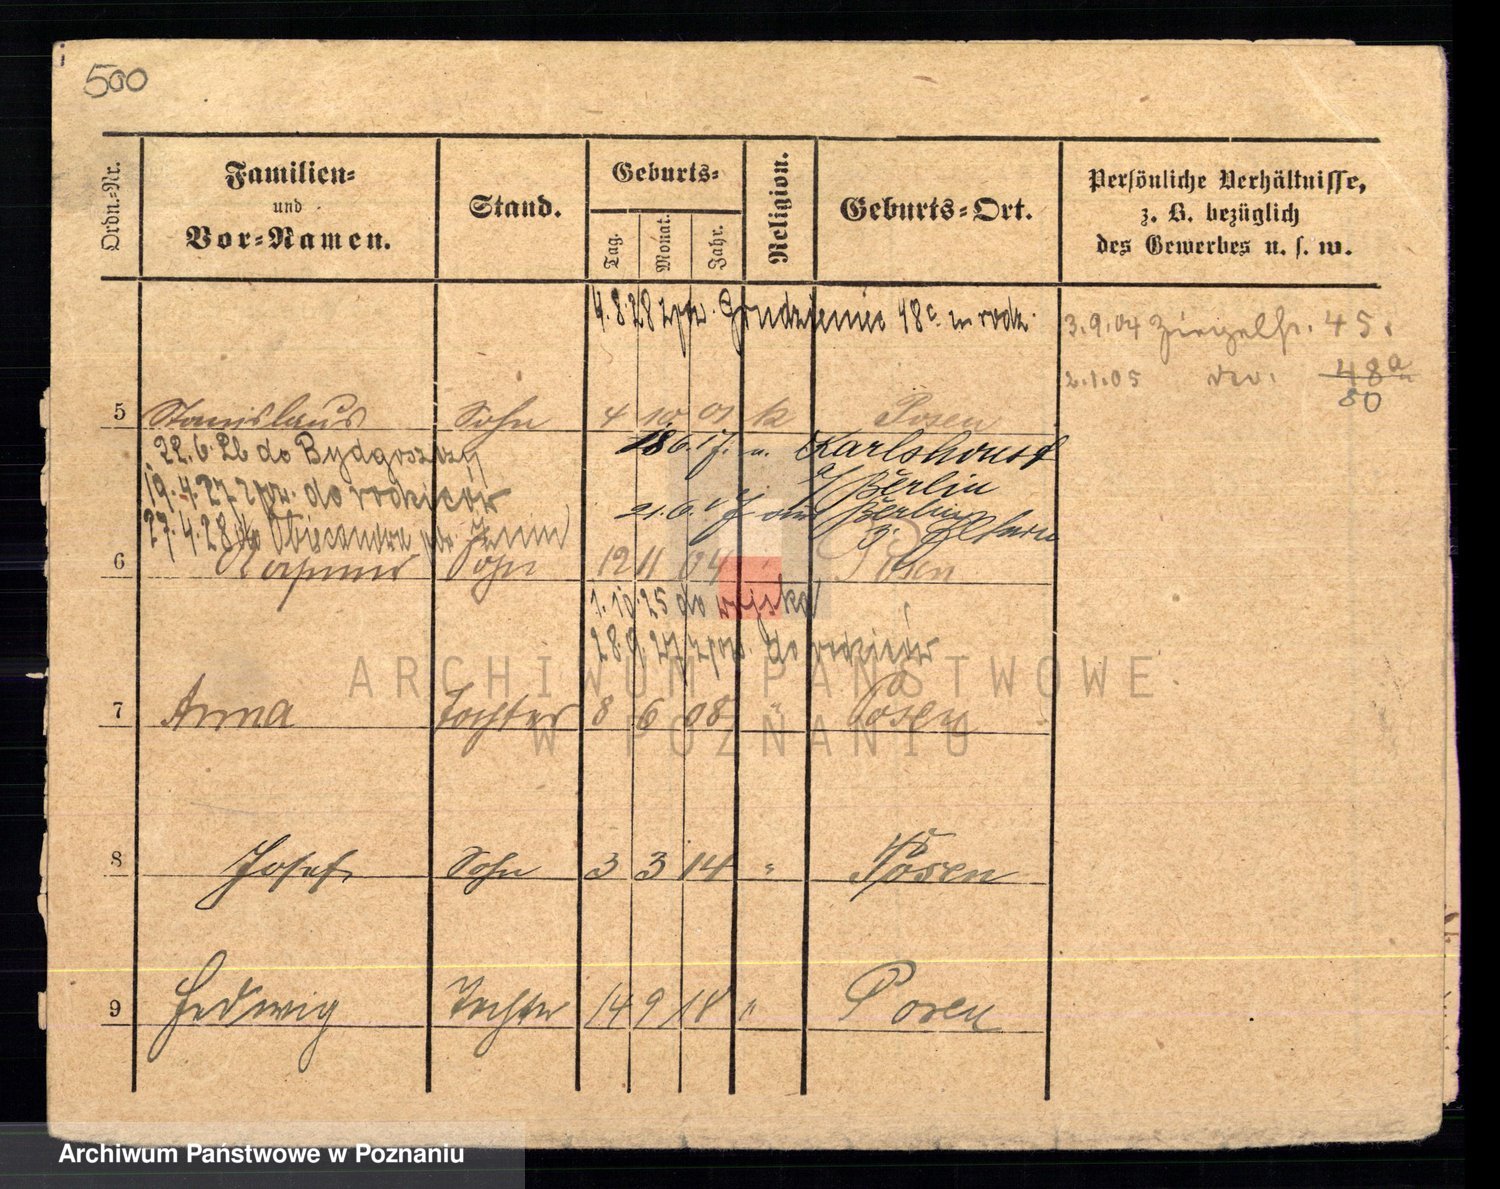 500
Ordn.-Nr.
Familien-
und
Vor-Namen.
Stand.
Geburts-
Tag.
Monat.
Jahr.
Religion.
Geburts-Ort.
Persönliche Verhältnisse,
z. B. bezüglich
des Gewerbes u. s. w.
4.8.28 zpr. Grudzieniec 48c m rodz.
3.9.04 Ziegelstr. 45.
2.1.05 48a
80
5 Stanislaus Sohn 4 10. 01 k Posen
22.6.26 do Bydgoszczy
18 6. 17. n. Karlshorst
a/ Berlin
19.4.27 zpr. do rodziców
21.6.17 von Berlin
z. Eltern
27.4.28 do
6 Sohn 12 11 04 Posen
1.10.25 do wojska
28.9.27 zpr. do rodziców
7 Anna Tochter 8 6 08 " Posen
8 Josef Sohn 3 3 14 " Posen
9 Hedwig Tochter 14 9 18 " Posen
ARCHIWUM PAŃSTWOWE
W POZNANIU
Archiwum Państwowe w Poznaniu